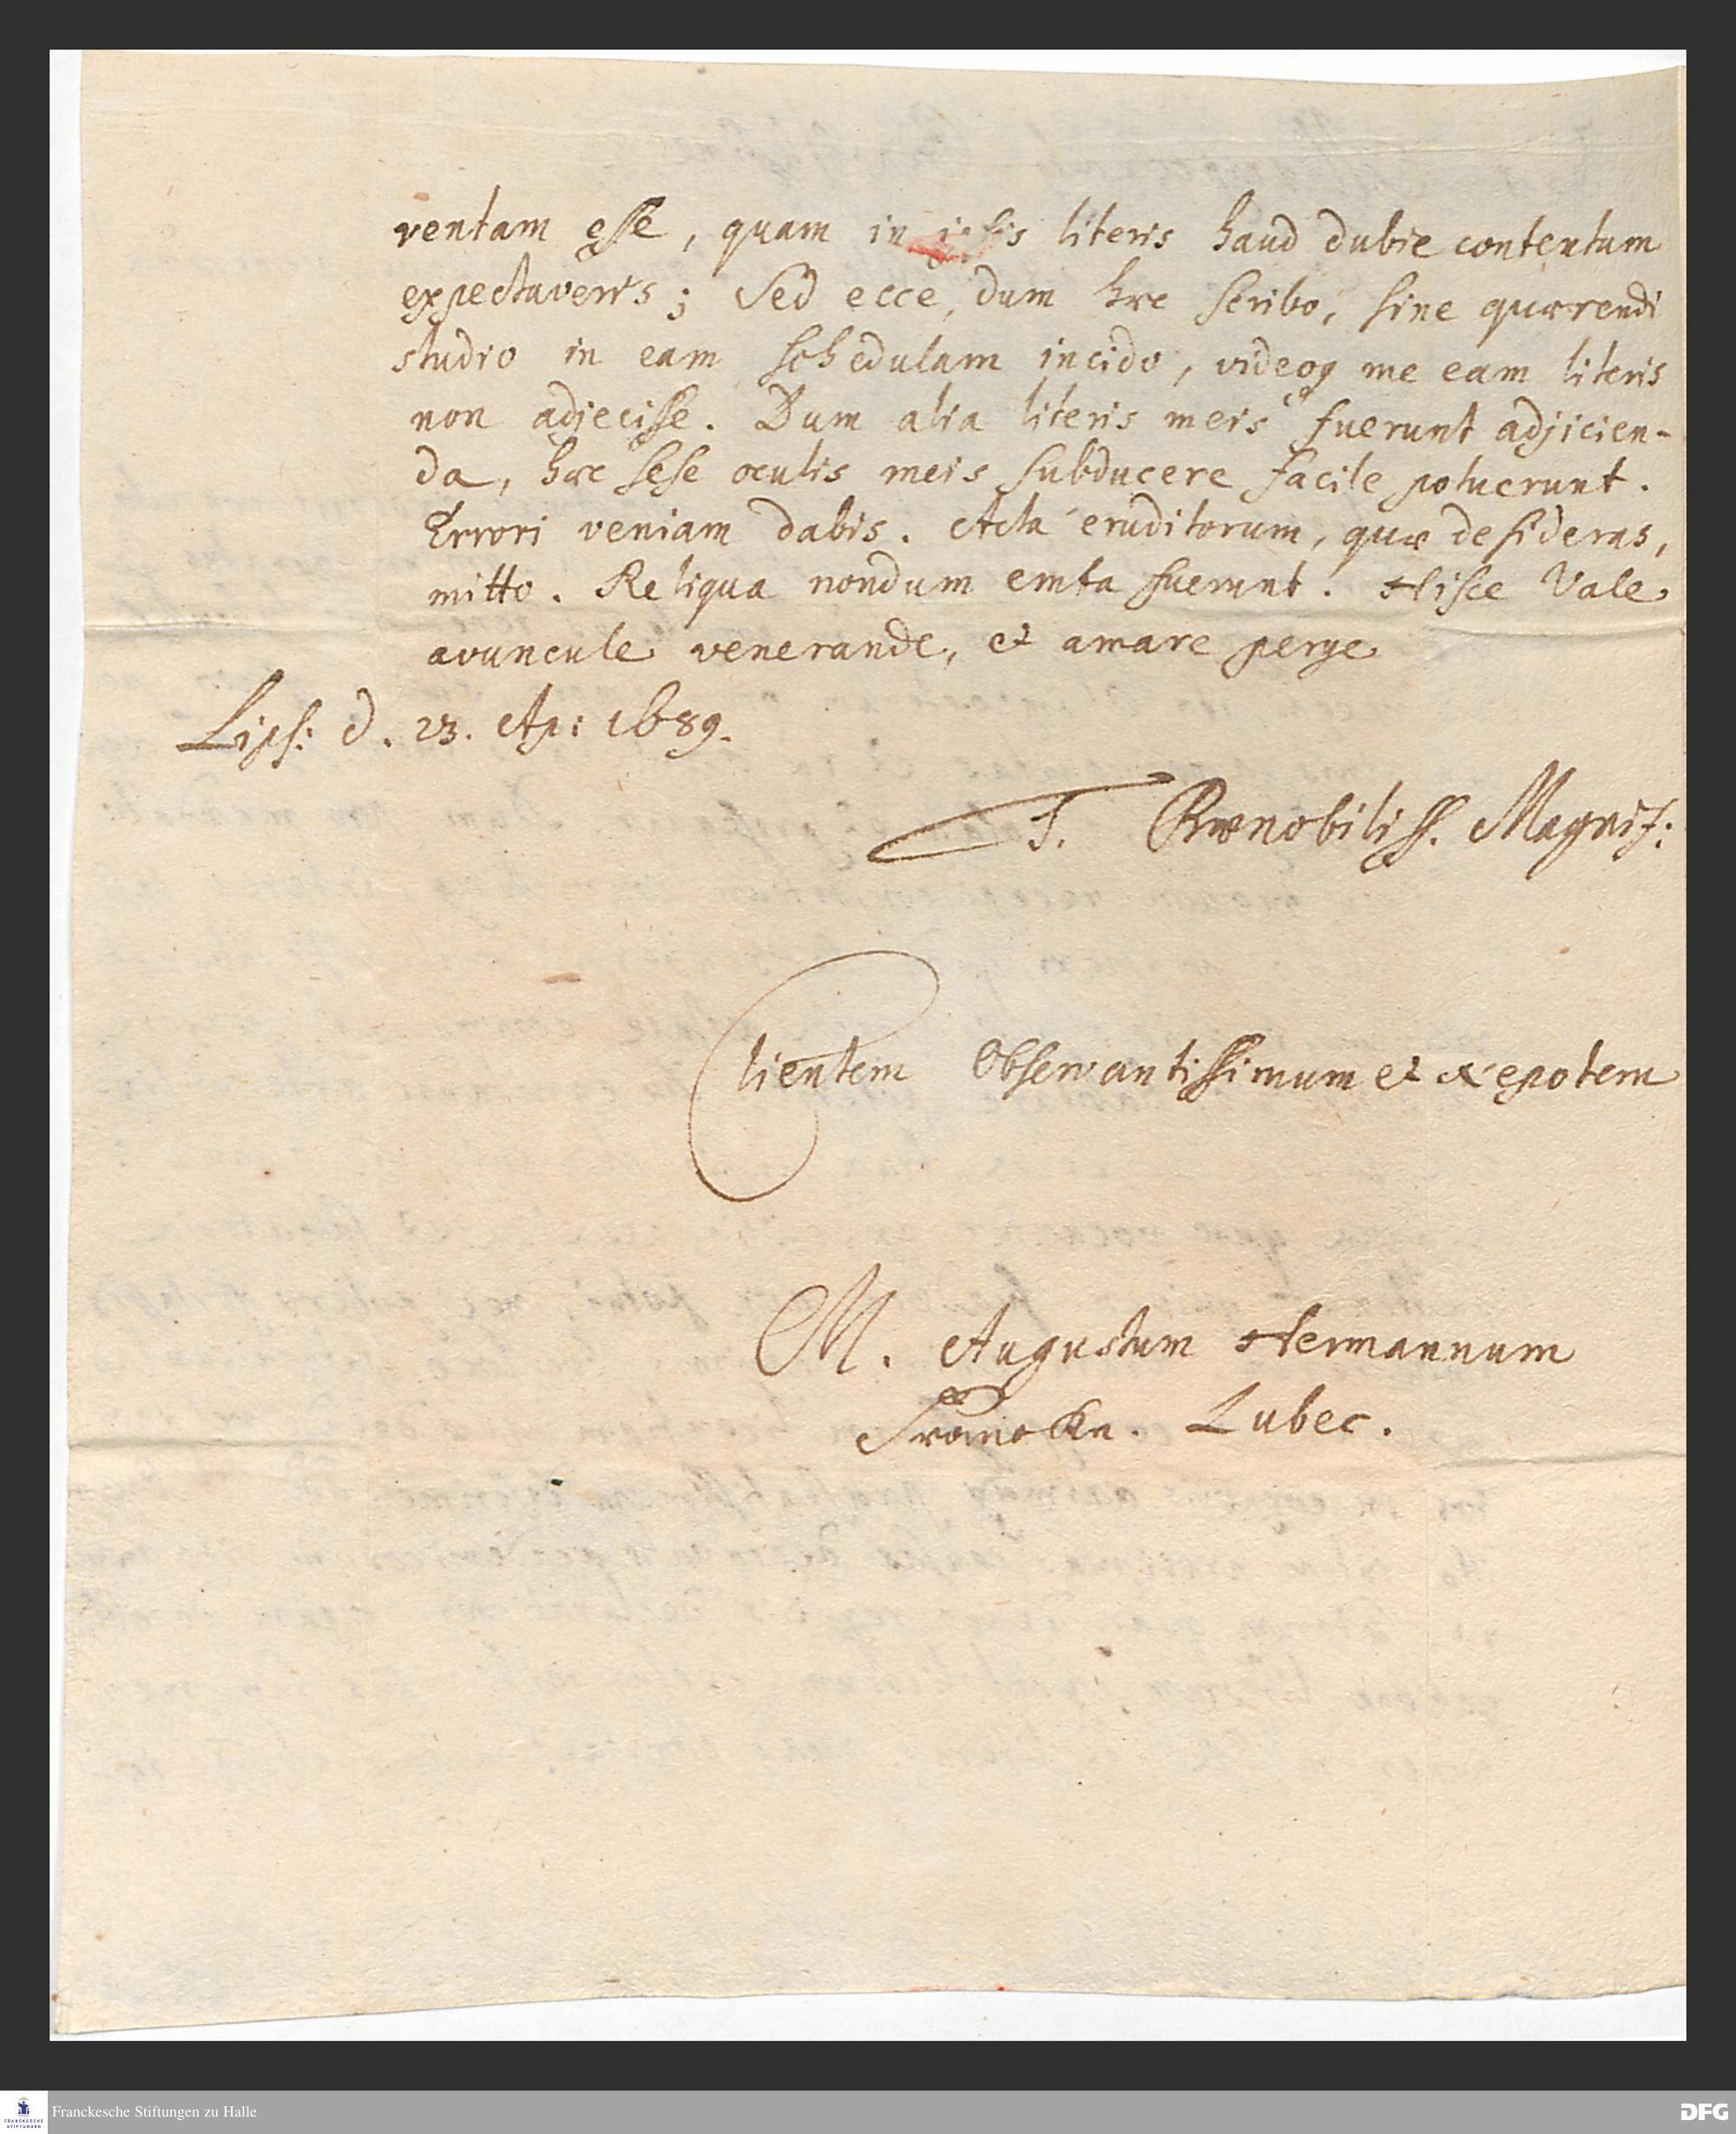 ventam esse, quam in ipsis literis haud dubie contentam
expectaveris; Sed ecce, dum hæc scribo, sine quærendi
studio in eam schedulam incido, videoq me eam literis
non adjecisse. Dum alia literis meis fuerunt adjicien-
da, hæc sese oculis meis subducere facile potuerunt.
Errori veniam dabis. Acta eruditorum, quæ desideras,
mitto. Reliqua nondum emta fuerunt. Hisce Vale
avuncule venerande, et amare perge
Lips: d. 23. Ap: 1689.
T. Prænobiliss. Magnif:
Clientem Observantissimum et Nepotem
M. Augustum Hermannum
Lubec.
FRANCKESCHE STIFTUNGEN
Franckesche Stiftungen zu Halle
DFG